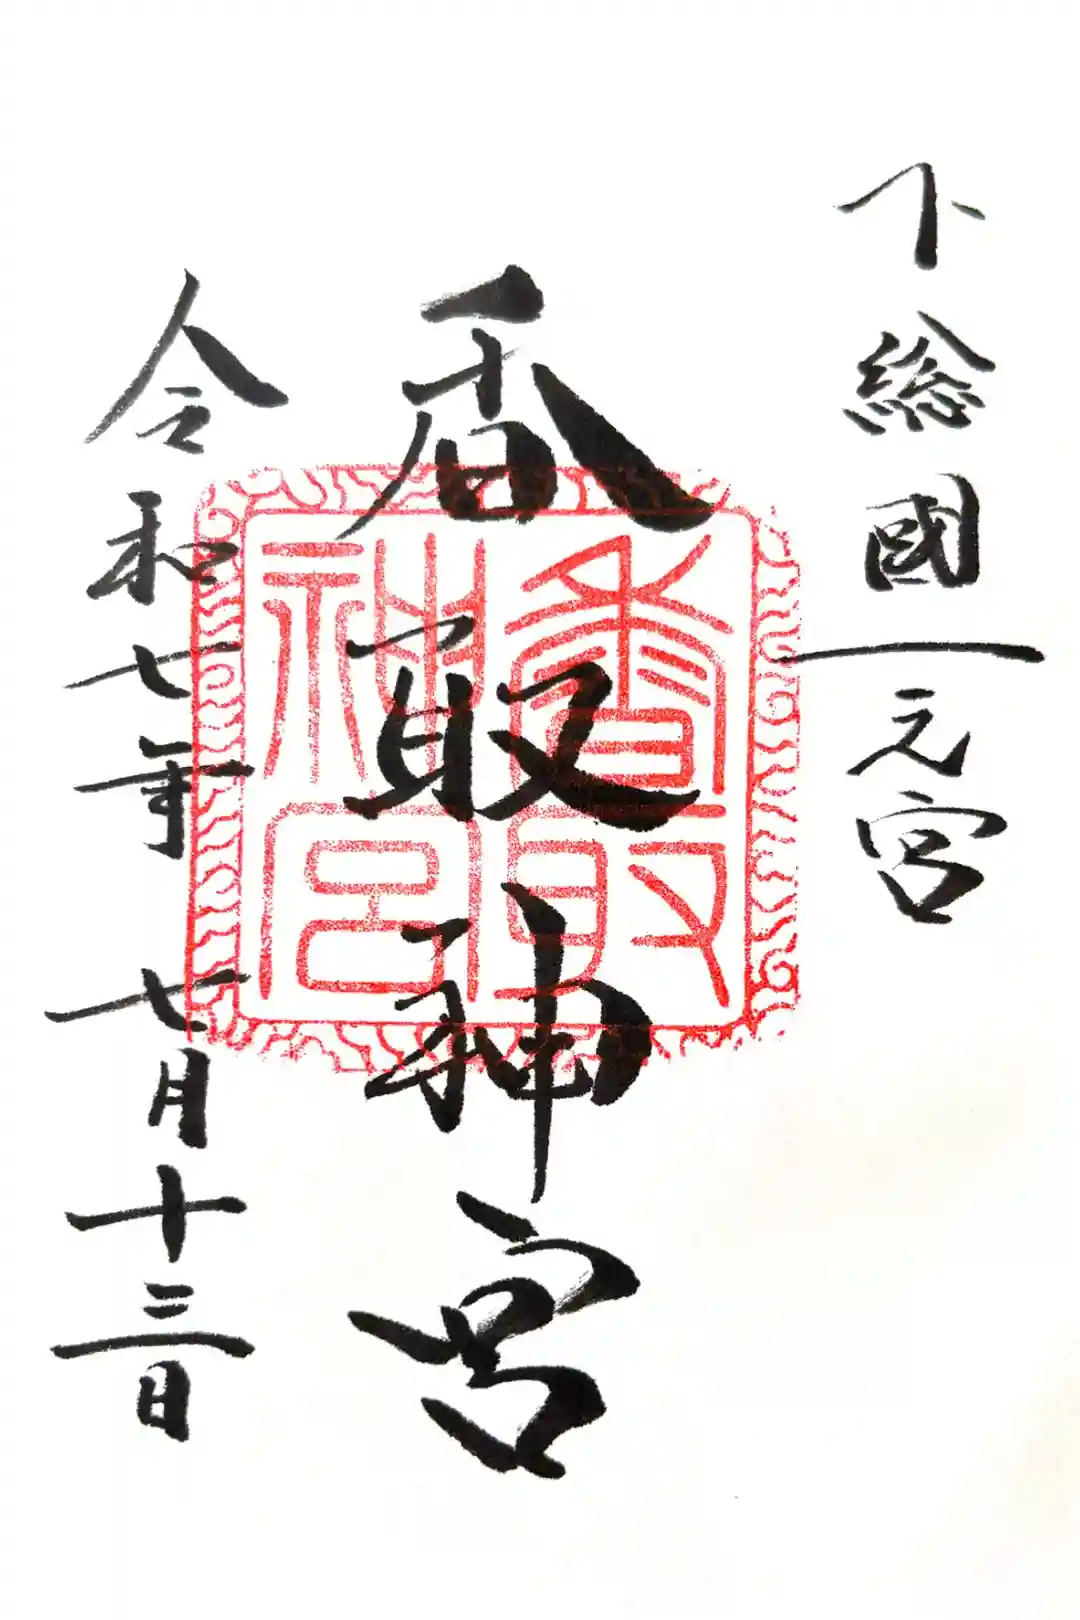 下総國一元宮
香取神宮
令和七年 七月十三日
香取
神宮